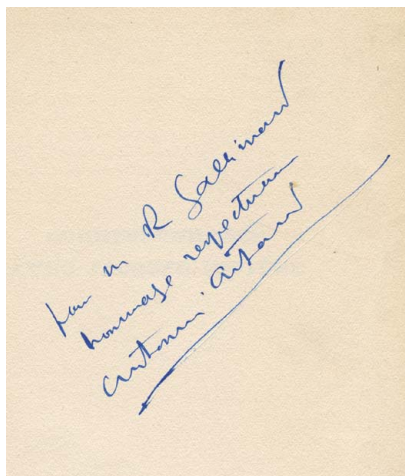 pour m R Gallimard
hommage respectueux
antonin artaud